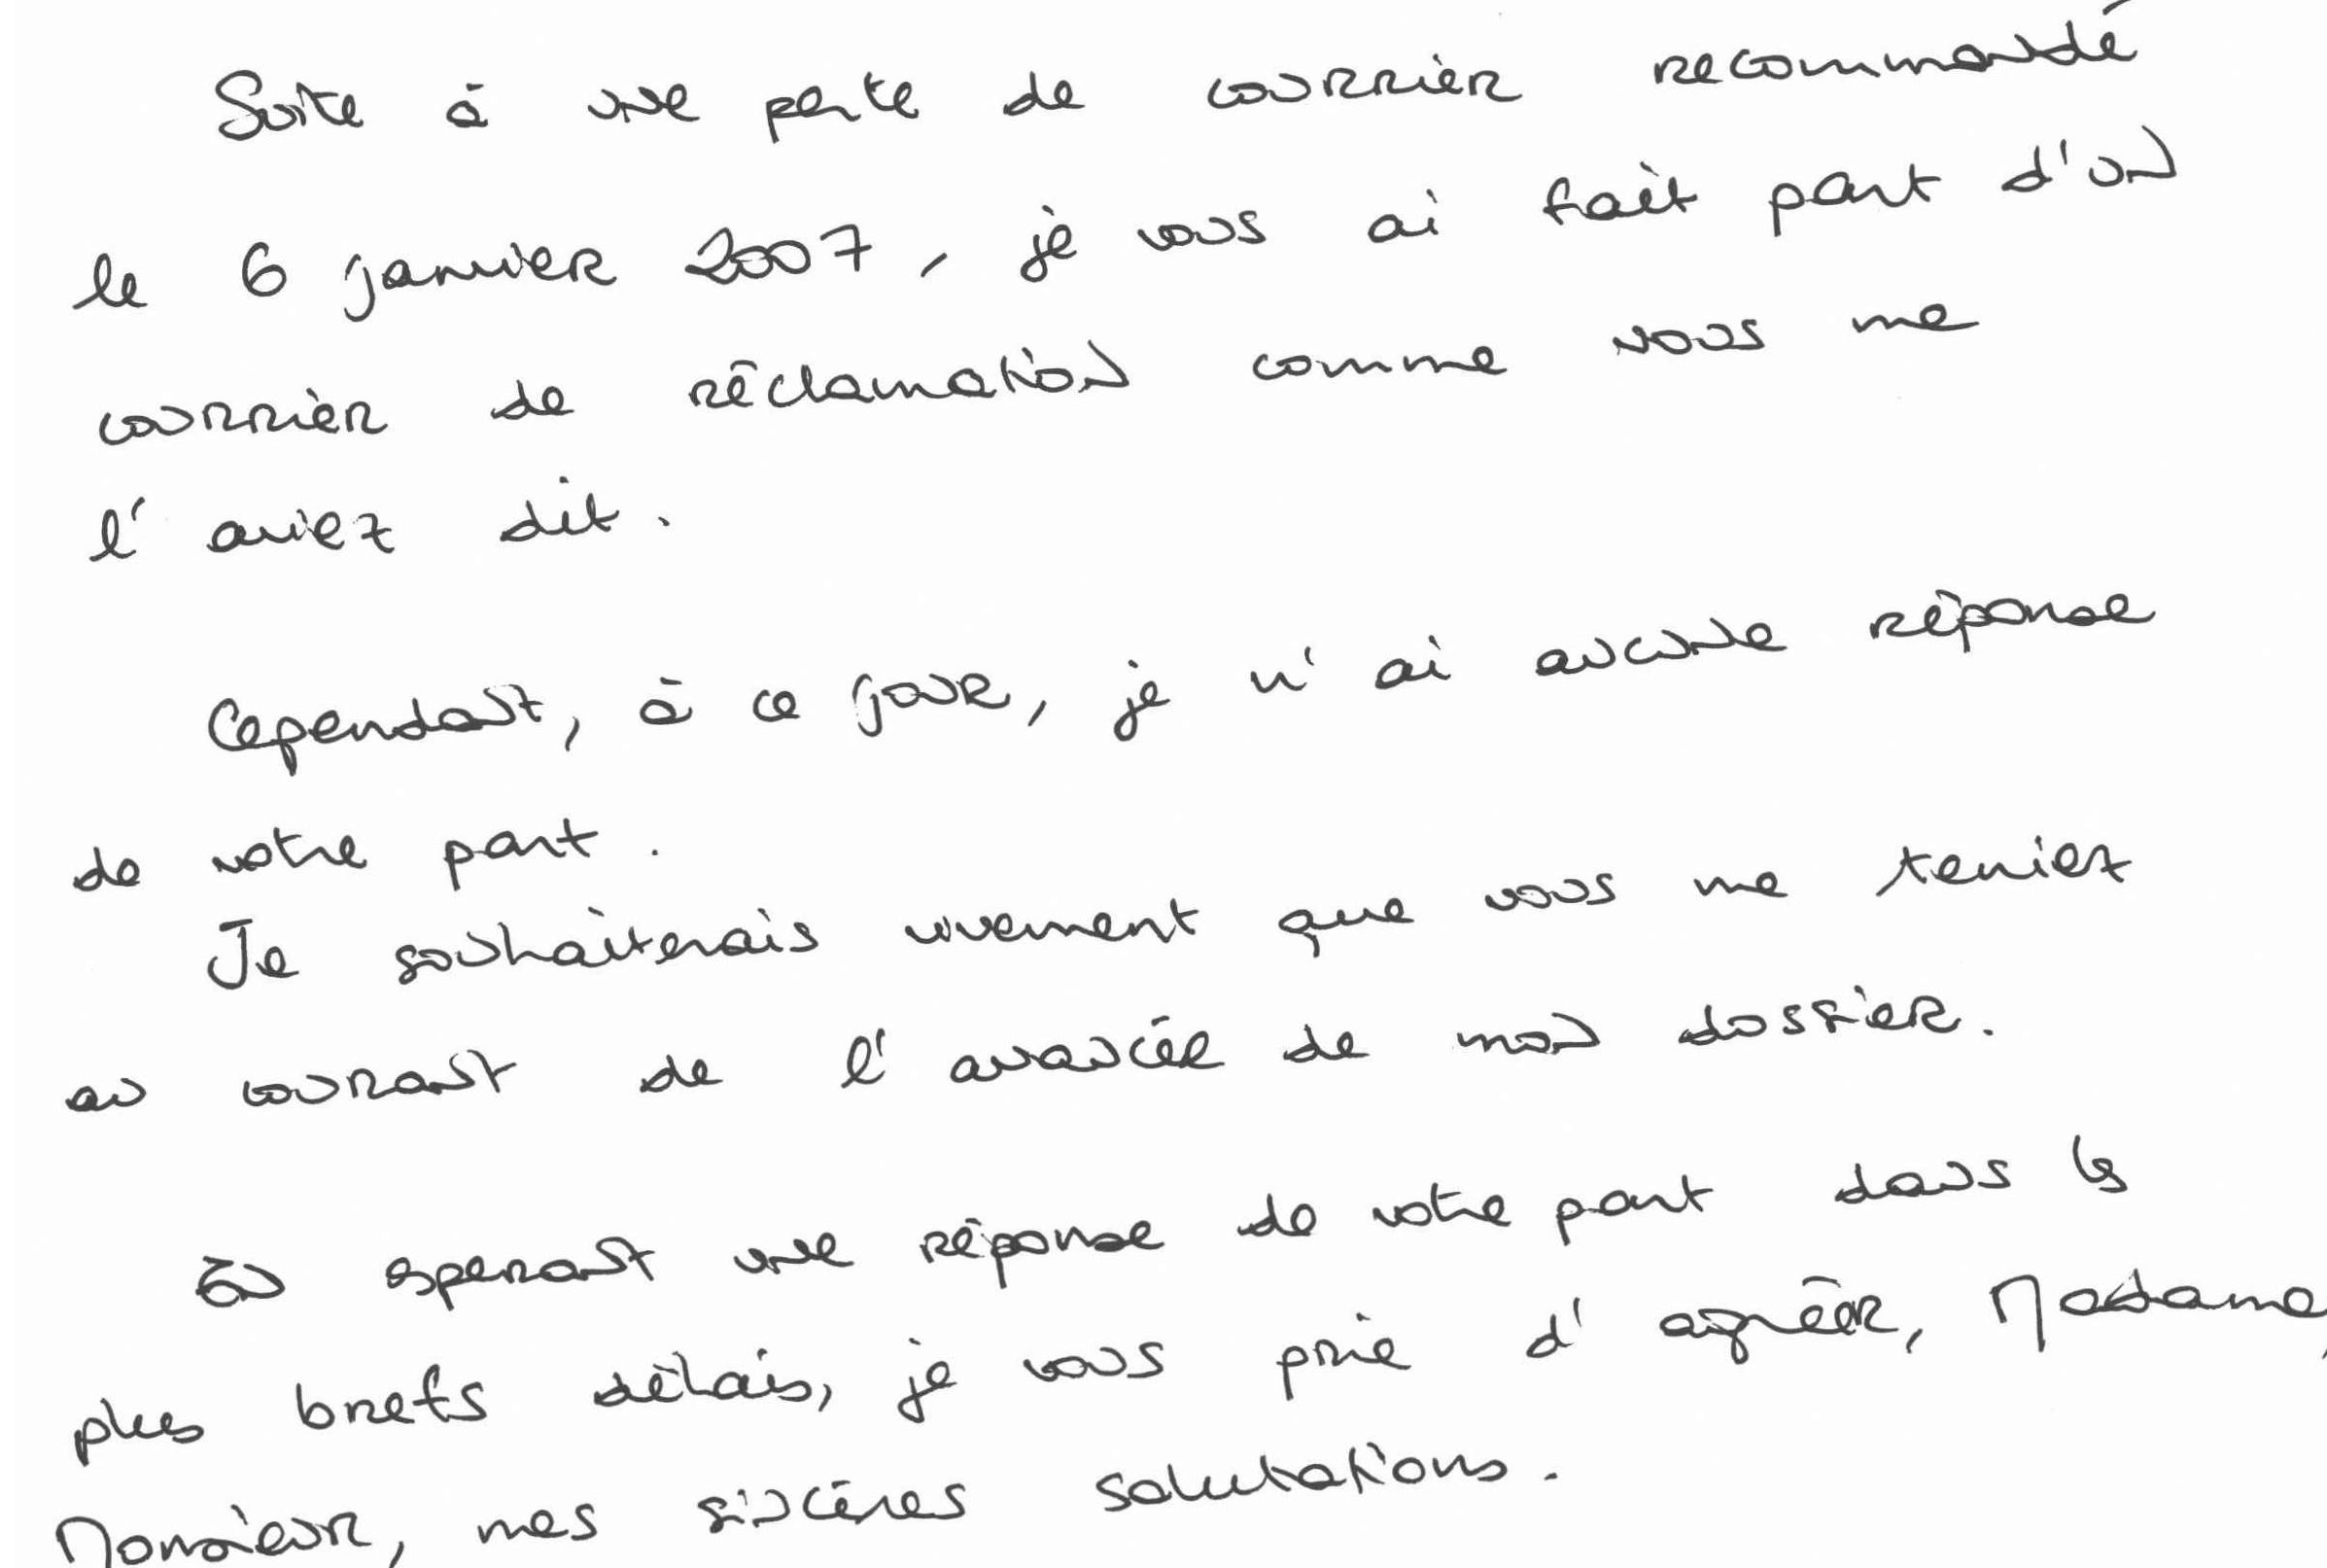 Suite à une perte de courrier recommandé
le 6 janvier 2007, je vous ai fait part d'un
courrier de réclamation comme vous me
l'aviez dit.
Cependant, à ce jour, je n'ai aucune réponse
de votre part.
Je souhaiterais vivement que vous me teniez
au courant de l'avancée de mon dossier.
En esperant une réponse de votre part dans les
plus brefs délais, je vous prie d'agréer, Madame,
Monsieur, mes sincères salutations.